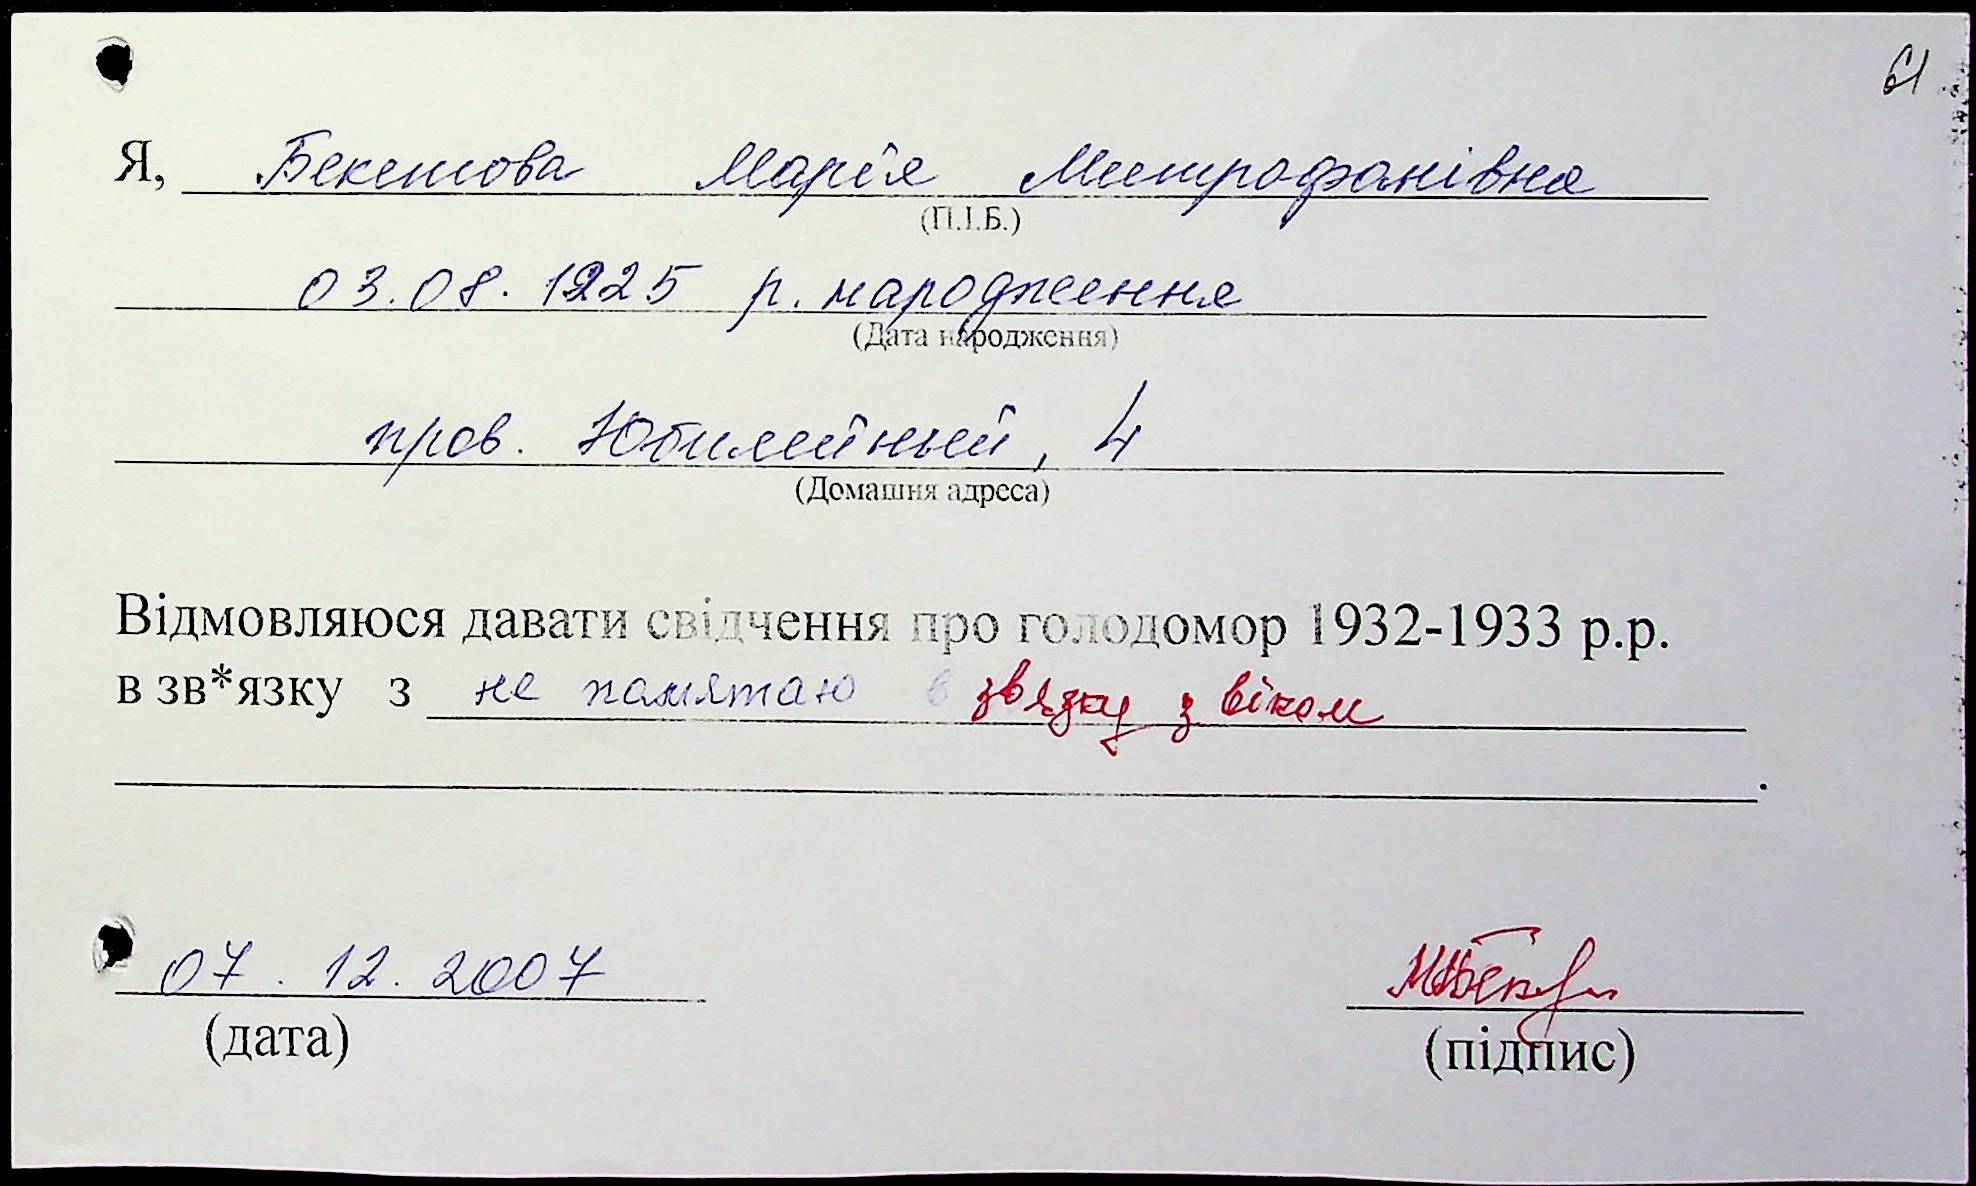 61
Я, Бекетова Марія Митрофанівна
(П.І.Б.)
03.08.1925 р. народження
(Дата народження)
пров. Юбилейный, 4
(Домашня адреса)
Відмовляюся давати свідчення про голодомор 1932-1933 р.р.
в зв*язку з не памятаю в звязку з віком
.
07.12.2007
(дата)
(підпис)